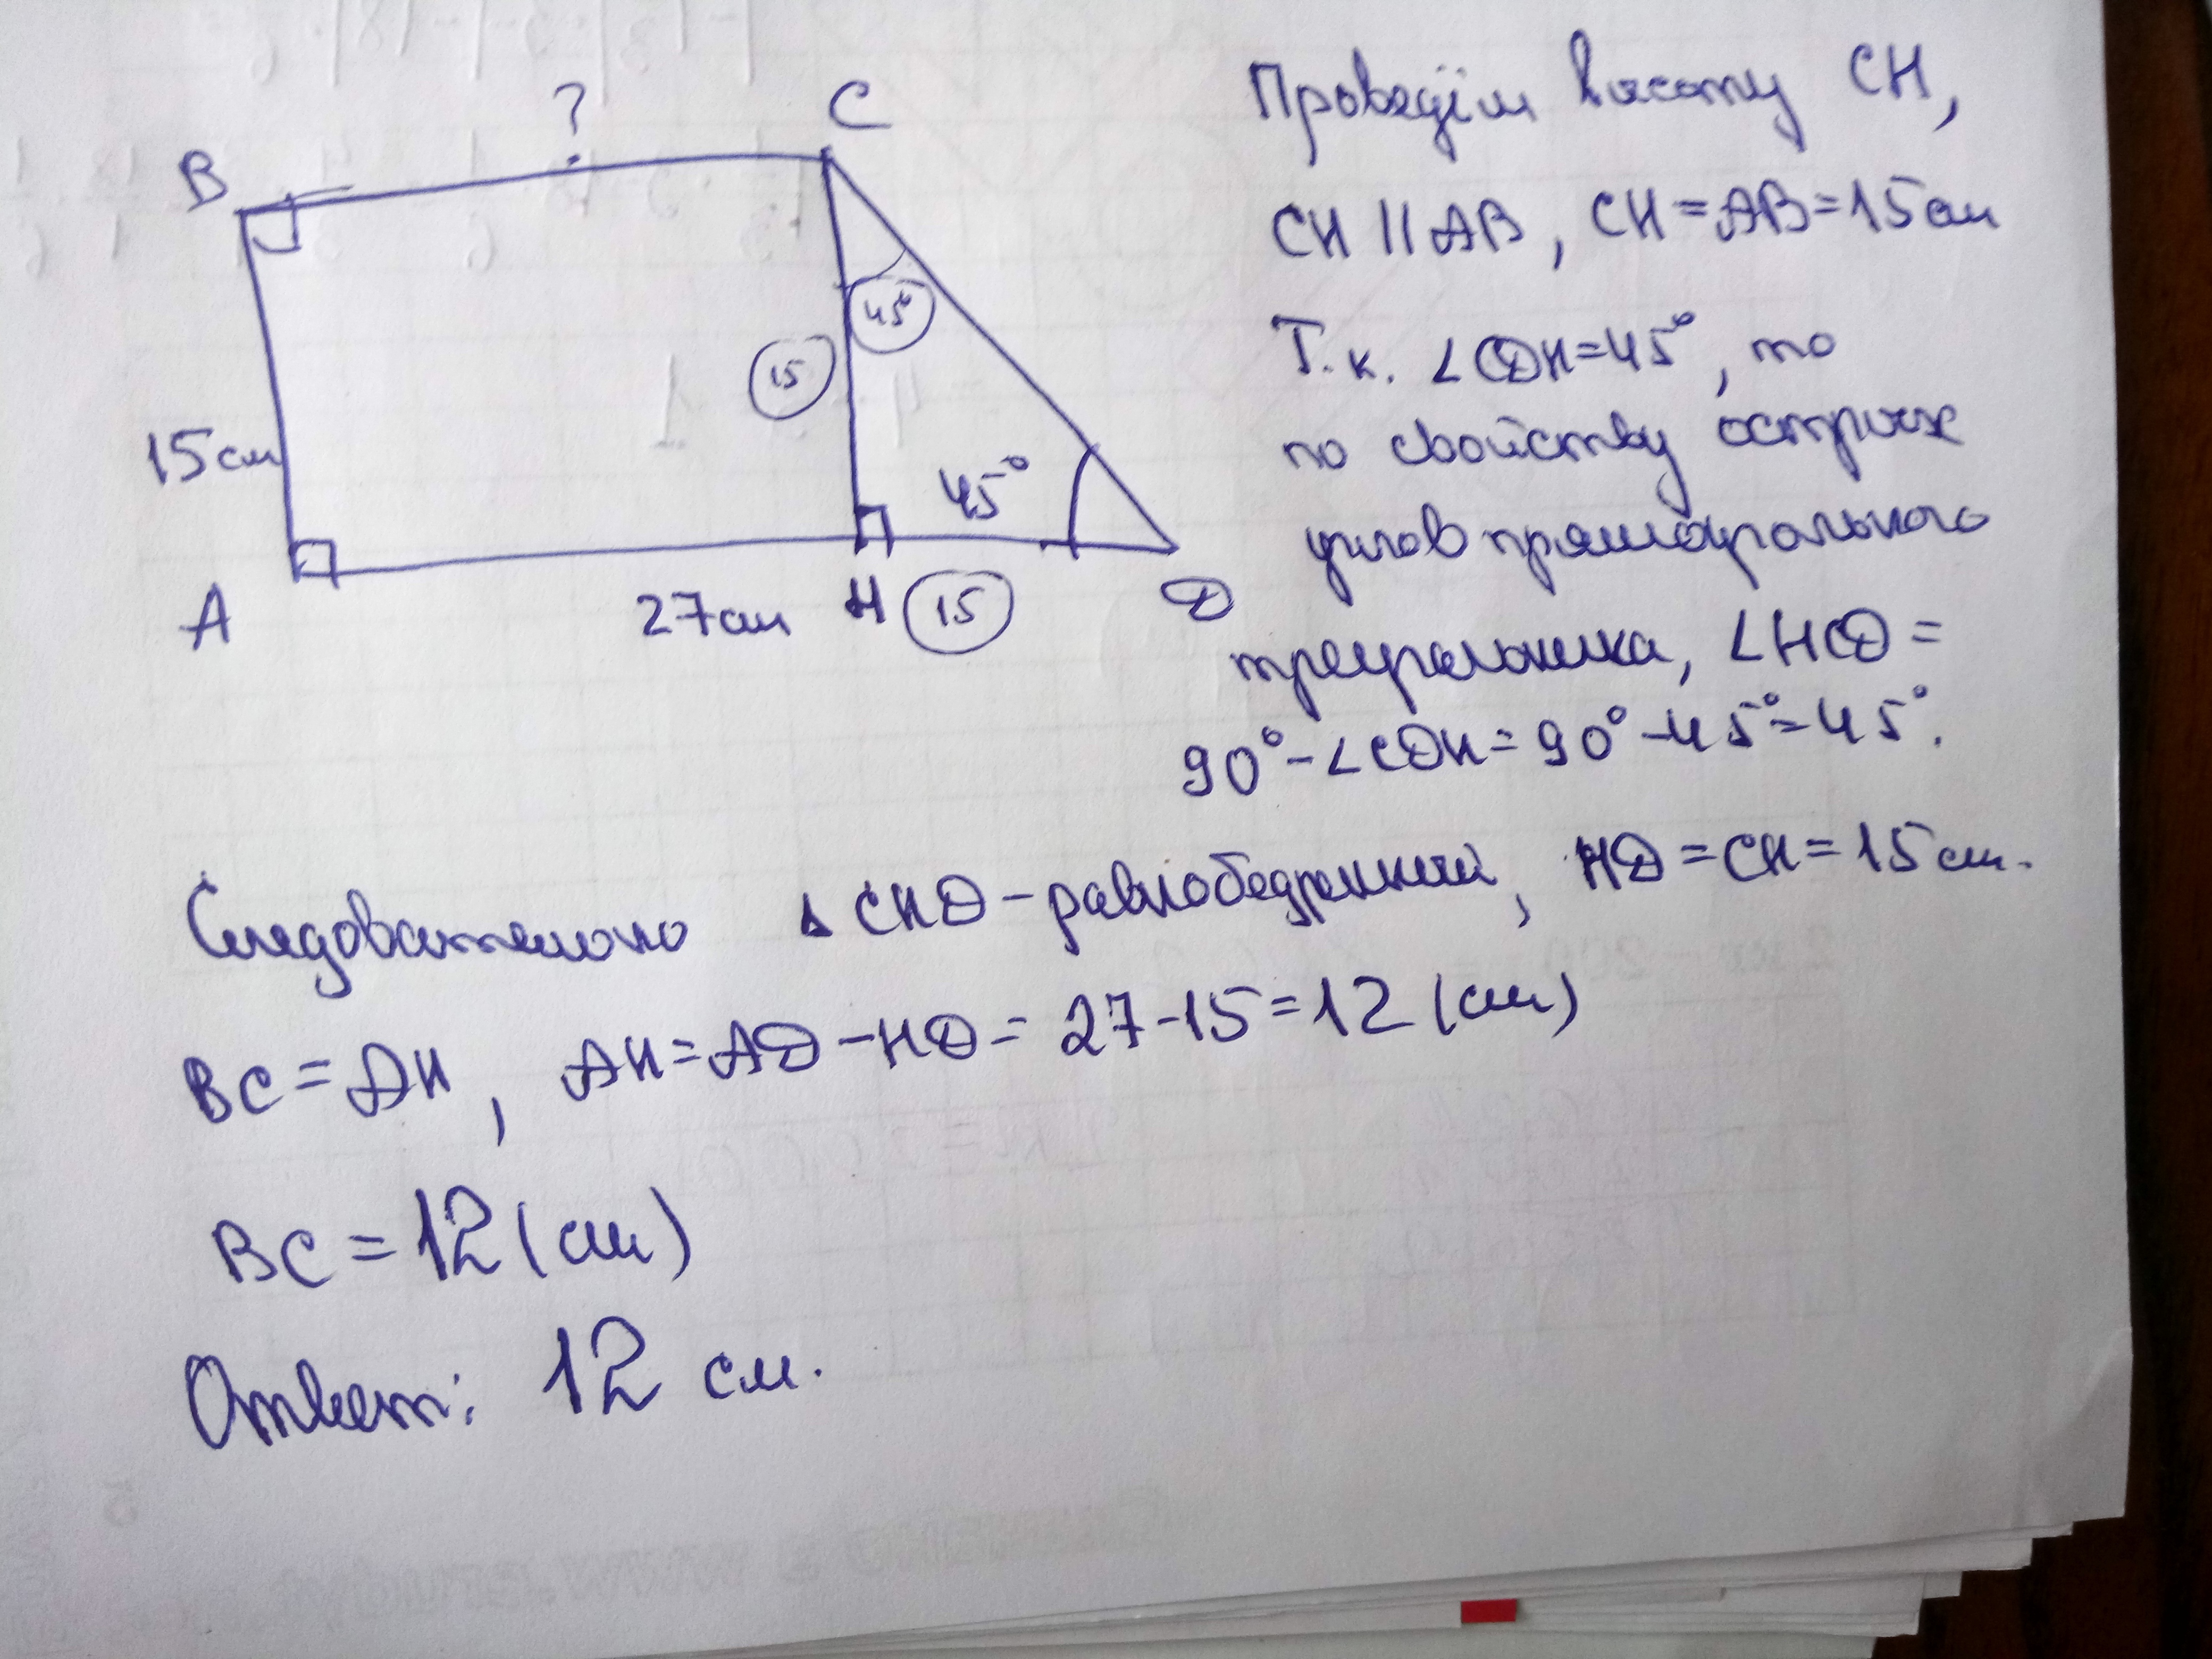 ?
B
C
45°
15
15 см
45°
A
27 см
H
15
D
Проведём высоту CH,
CH || AB, CH = AB = 15 см
Т.к. ∠CDH = 45°, то
по свойству острых
углов прямоугольного
треугольника, ∠HCD =
90° - ∠CDH = 90° - 45° = 45°.
Следовательно ΔCHD - равнобедренный, HD = CH = 15 см.
BC = AH, AH = AD - HD = 27 - 15 = 12 (см)
BC = 12 (см)
Ответ: 12 см.